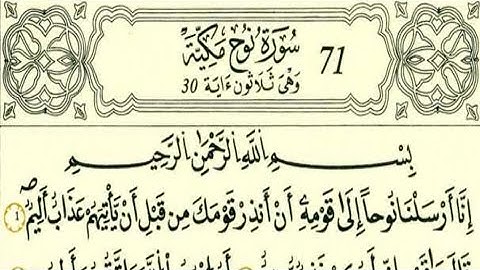 سُورَةُ نُوحٍ مَكِّيَّةٌ 71
وَهْىَ ثَلَاثُونَ ءَايَة 30
بِسْمِ اللَّهِ الرَّحْمَٰنِ الرَّحِيمِ
إِنَّا أَرْسَلْنَا نُوحاً إِلَىٰ قَوْمِهِۦ أَنْ أَنذِرْ قَوْمَكَ مِن قَبْلِ أَنْ يَأْتِيَهُمْ عَذَابٌ أَلِيمٌ 1